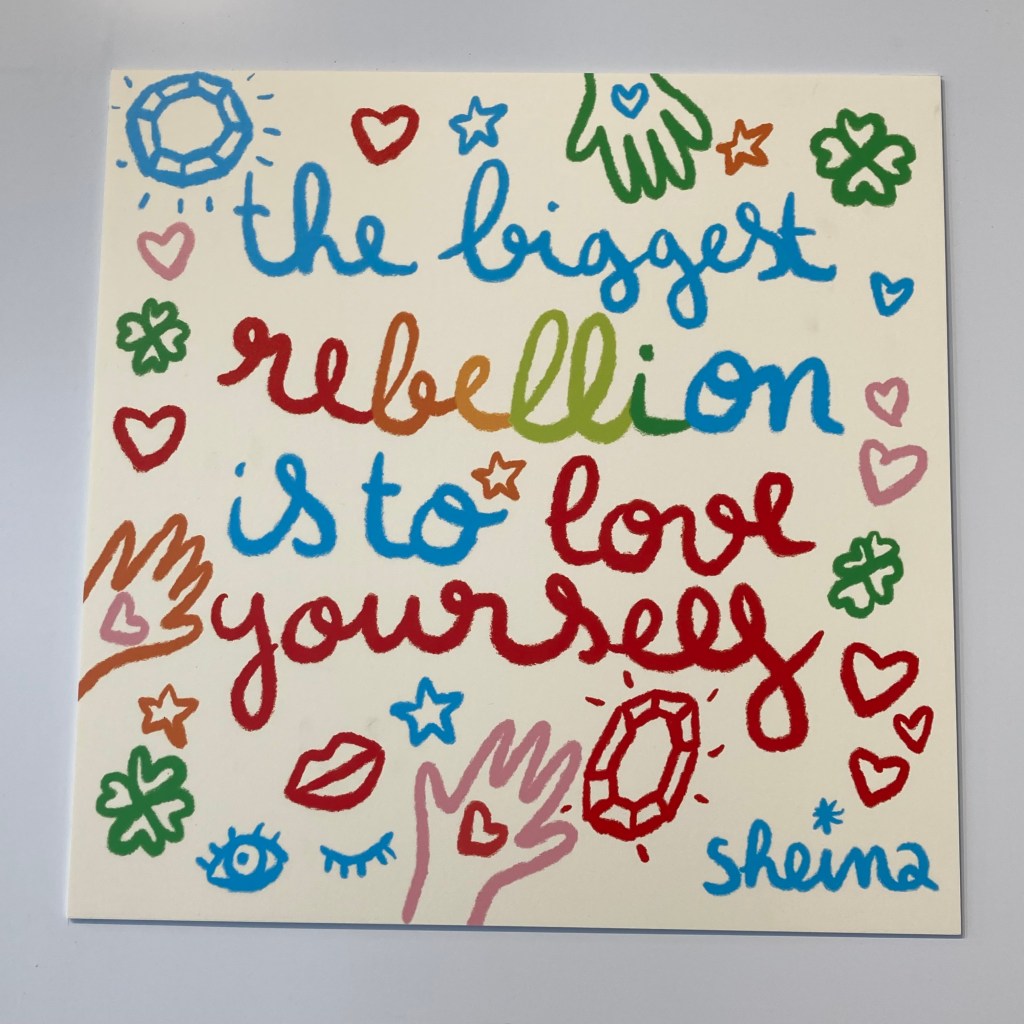 the biggest
rebellion
is to love
yourself
sheina